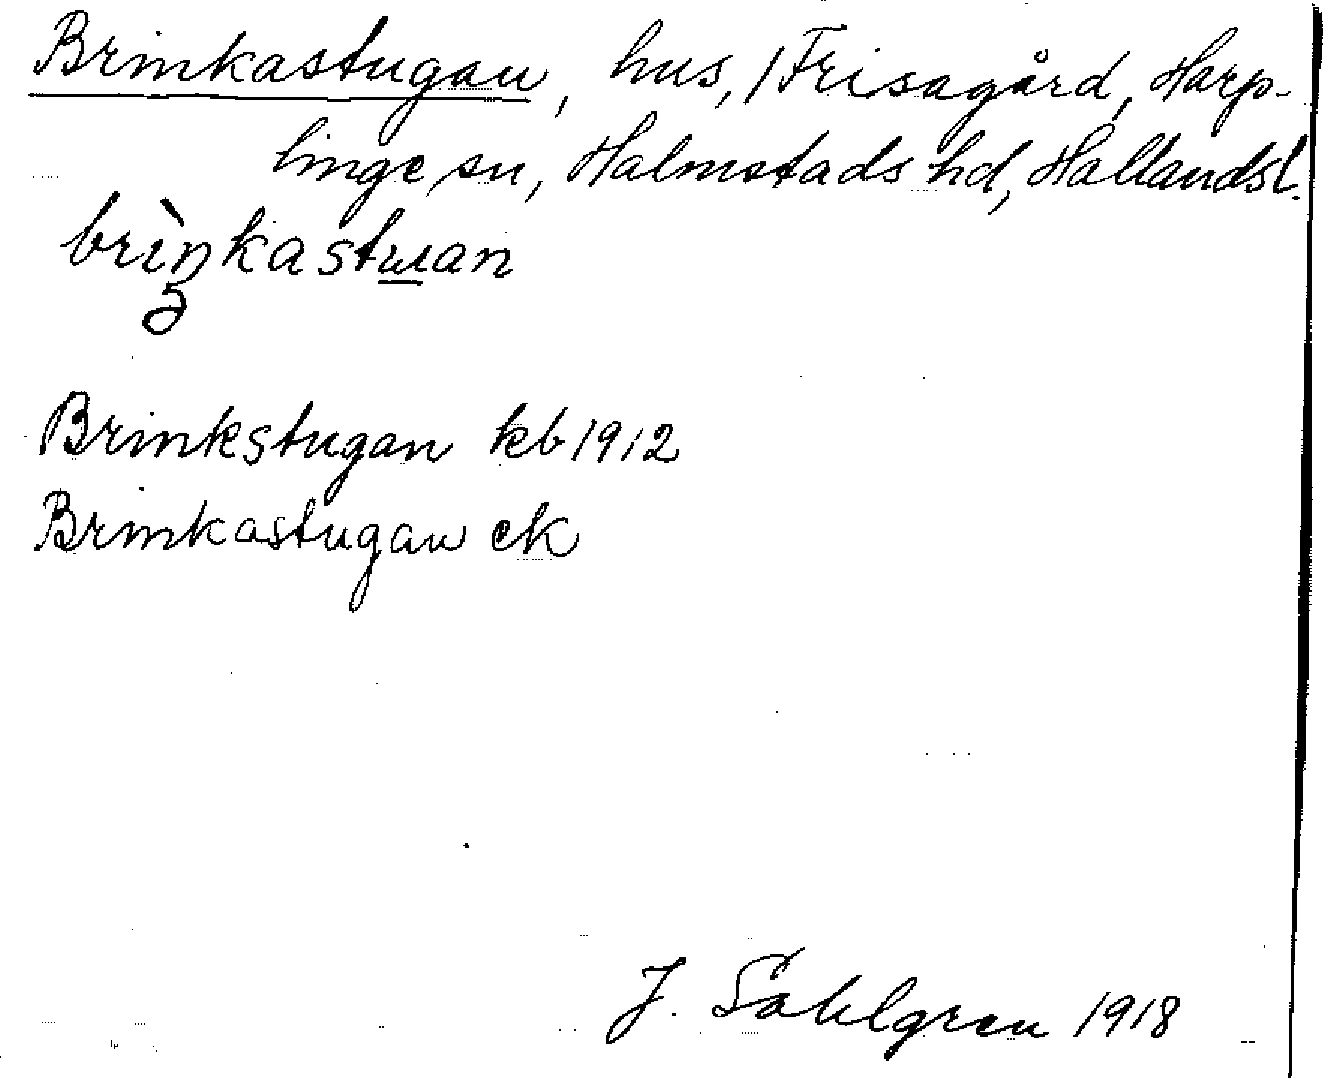 Brinkastugan, hus, / Frisagård, Harp-
linge sn, Halmstads hd, Hallands l.
brìŋkastɯan
Brinkstugan kb 1912
Brinkastugan ek
J. Sahlgren 1918